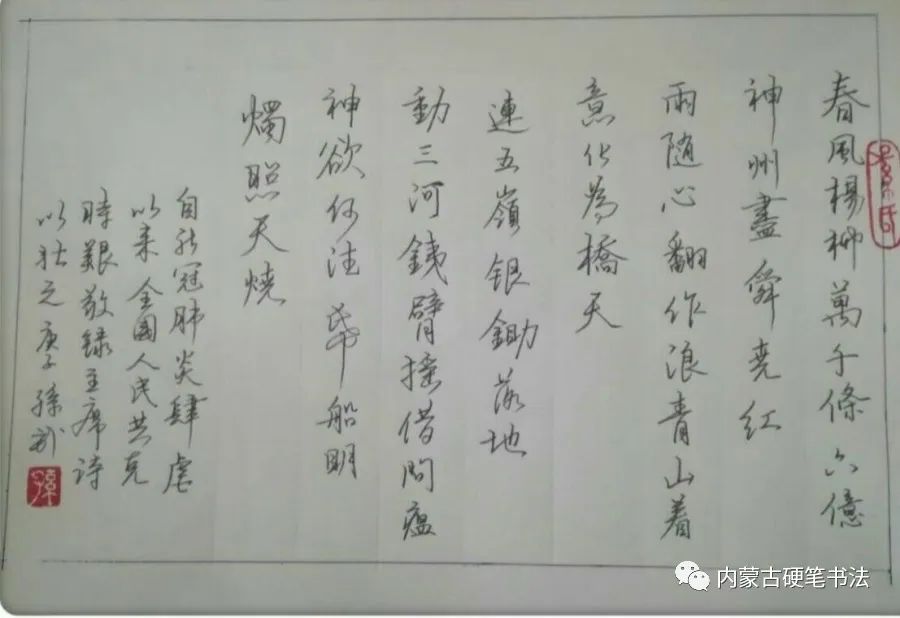 春風楊柳萬千條六億
神州盡舜堯红
雨随心翻作浪青山着
意化為橋天
連五嶺银鋤落地
動三河鉄臂摇借問瘟
神欲何往帋船明
燭照天燒
自新冠肺炎肆虐
以来全國人民共克
時艱敬録主席诗
以壮之庚子孫
孫
内蒙古硬笔书法